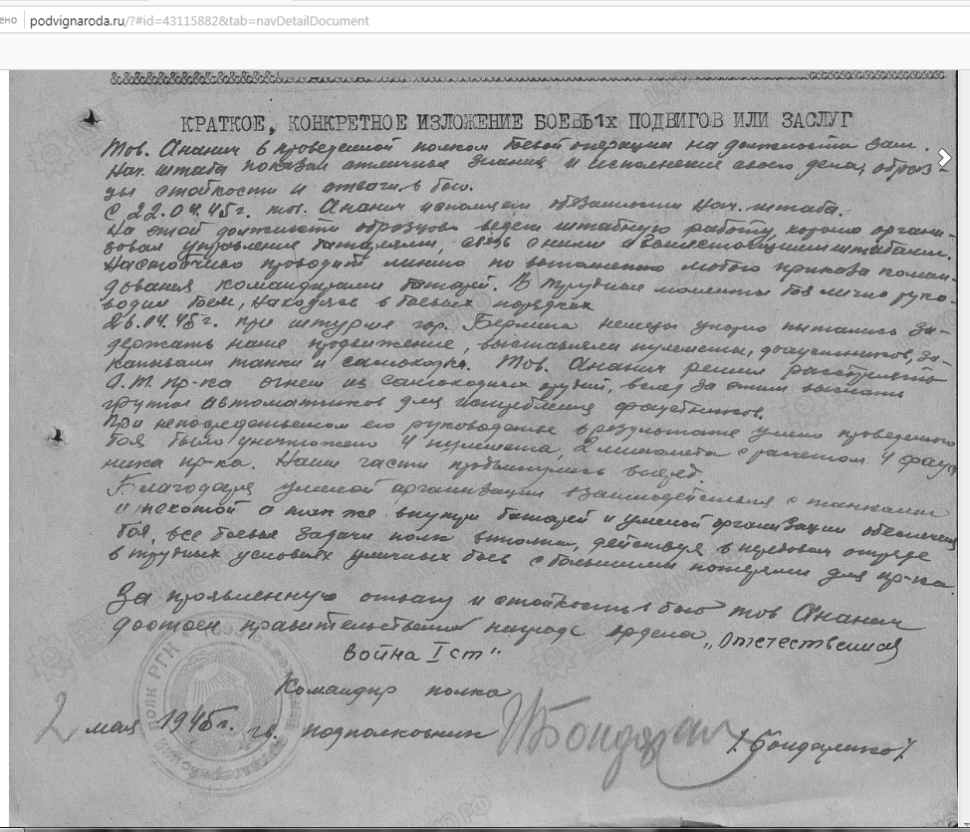 podvignaroda.ru/?#id=43115882&tab=navDetailDocument
КРАТКОЕ, КОНКРЕТНОЕ ИЗЛОЖЕНИЕ БОЕВЬ1х ПОДВИГОВ ИЛИ ЗАСЛУГ
Тов. Ананич в проведенной полком боевой операции на должности Зам.
Нач. штаба показал отличные знания и исполнение своего дела, образ-
цы стойкости и отваги в бою.
С 22.04.45г. тов. Ананич исполняет обязанности Нач. штаба.
На этой должности образцово ведет штабную работу, хорошо органи-
зовал управление батареями, связь с ними и вышестоящими штабами.
Настойчиво проводит линию по выполнению любого приказа коман-
дования командирами батарей. В трудные моменты боя лично руко-
водил боем, находясь в боевых порядках
26.04.45г. при штурме гор. Берлина немцы упорно пытались за-
держать наше продвижение, выставляли пулеметы,
танки и самоходки. Тов. Ананич решил расстрелять
О.Т. пр-ка огнем из самоходных орудий, вслед за этим выслать
группы автоматчиков для истребления фаустников.
При непосредственном его руководстве в результате умело проведенного
боя было уничтожено 4 пулемета, 2 миномета с расчетом 4 фауст
ника пр-ка. Наши части продвинулись вперед.
Благодаря умелой организации взаимодействия с танками
и пехотой а так же внутри батарей и умелой организации обеспечения
боя, все боевые задачи полк выполнил, действуя в передовом отряде
в трудных условиях уличных боев с большими потерями для пр-ка.
За проявленную отвагу и стойкость в бою тов Ананич
достоин правительственной награды ордена „Отечественная
Война I ст"
Командир полка
2 мая 1945г. гв. подполковник
/Бондаренко/